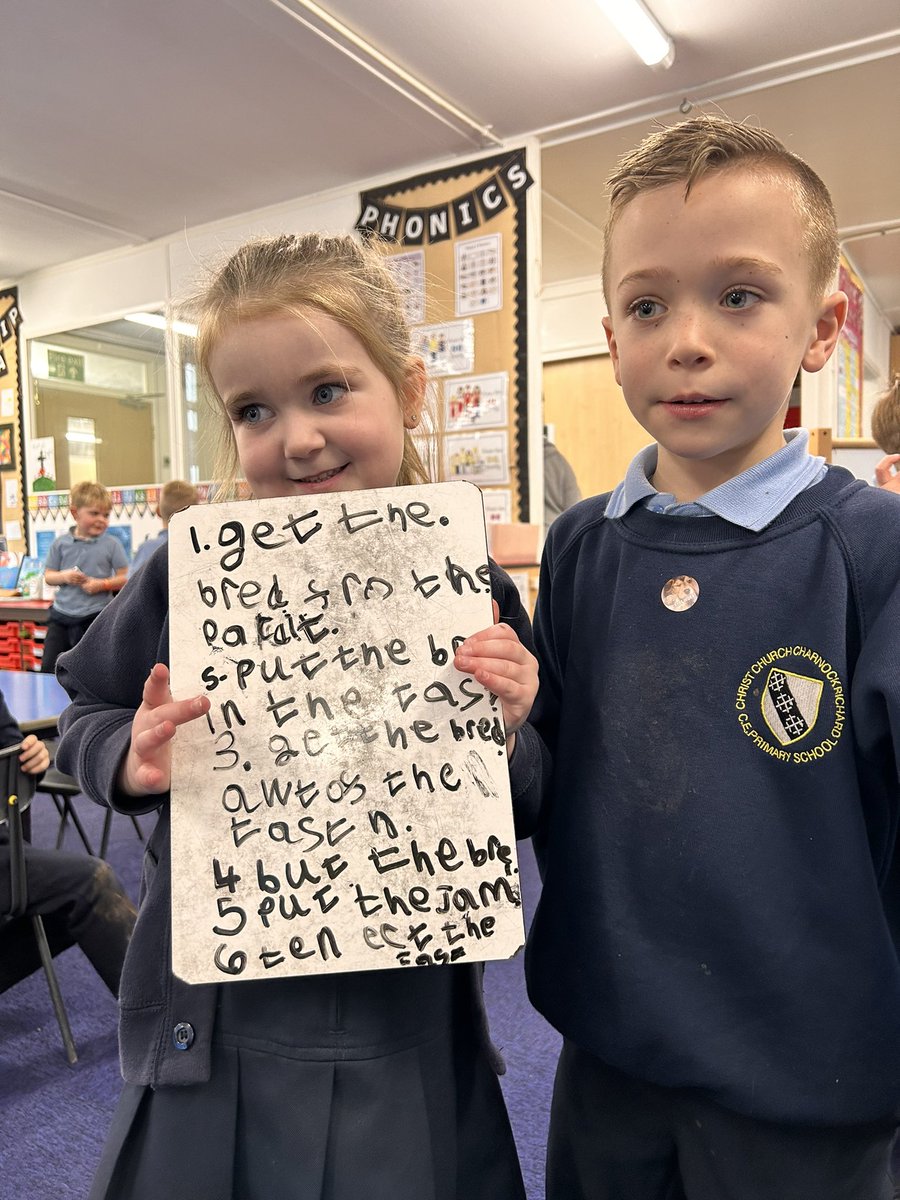 PHONICS
1. get the.
bred frm the
patcit.
s. put the br
in the tas.
3. get the bred
awt os the
tastn.
4 but the bre
5 put the Jam
6 ten eet the
tast
CHRIST CHURCH CHARNOCK RICHARD
C.E. PRIMARY SCHOOL